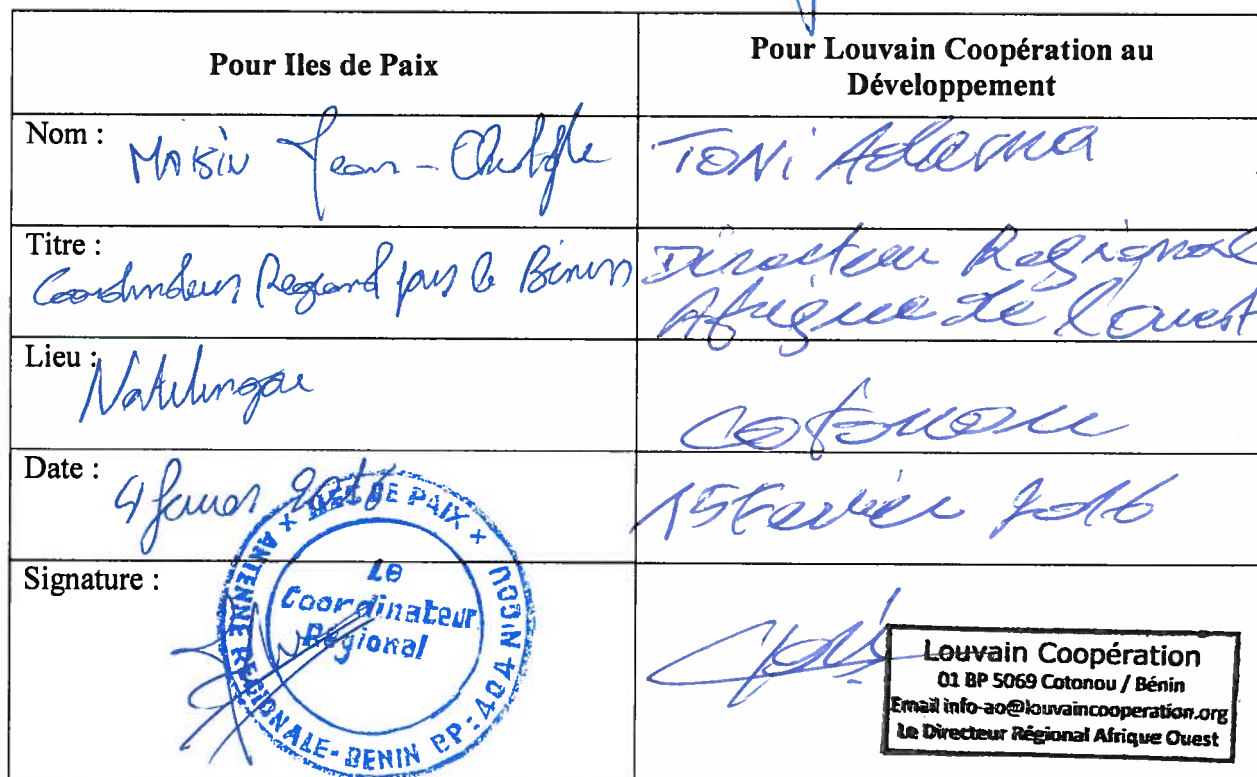 Pour Iles de Paix
Pour Louvain Coopération au
Développement
Nom :
Jean - Christophe
TONI Adama
Titre :
Coordinateur Regional pour le Bénin
Directeur Régional
Afrique de l'ouest
Lieu :
Natitingou
Cotonou
Date :
2016
15 Février 2016
Signature :
ILES DE PAIX
ANTENNE REGIONALE - BENIN BP: 404
Le
Coordinateur
Régional
Louvain Coopération
01 BP 5069 Cotonou / Bénin
Email info-ao@louvaincooperation.org
Le Directeur Régional Afrique Ouest